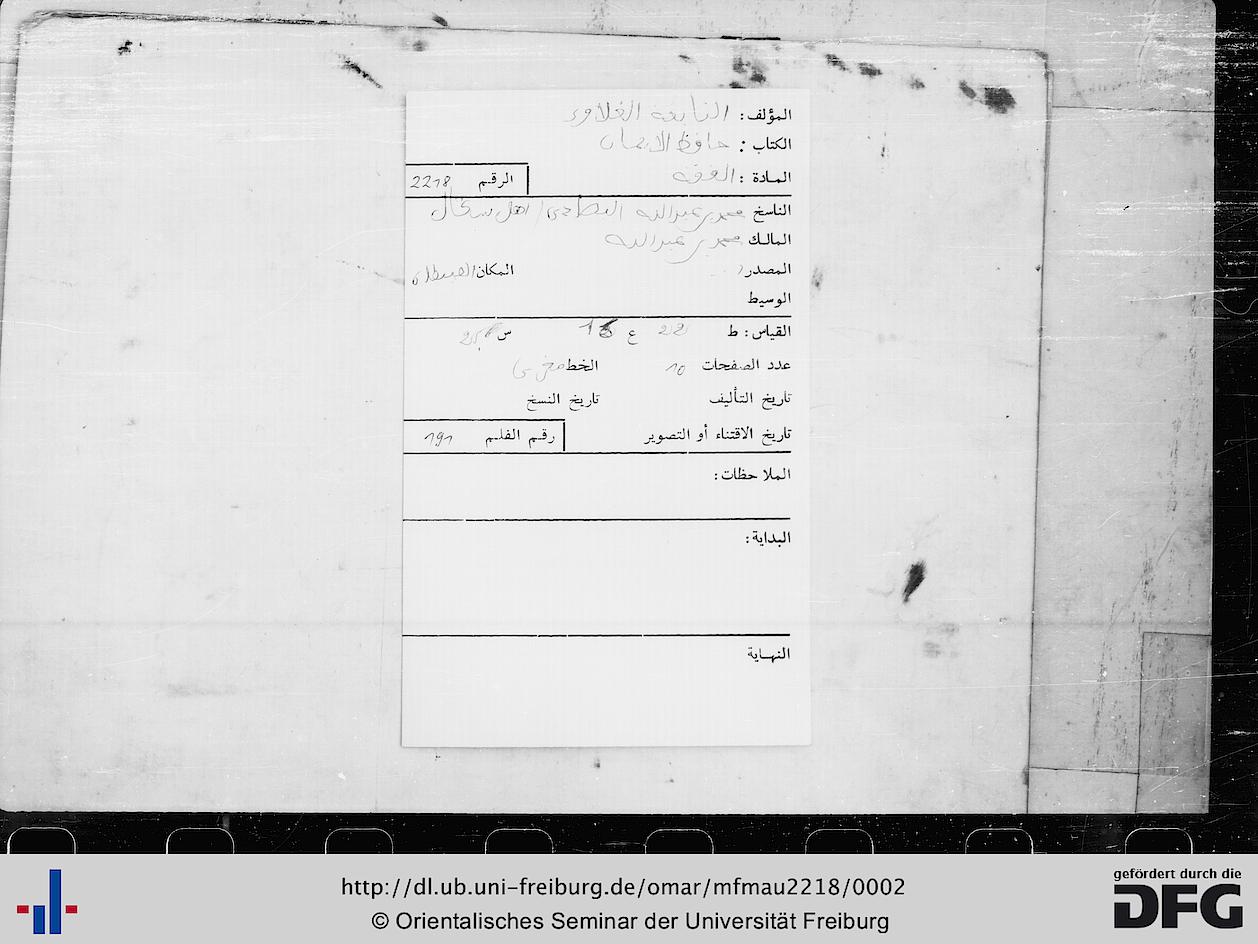 المؤلف: النابغه الغلاوي
الكتاب:
المادة: الفقه
الرقم 2218
الناسخ محمد بن عبدالله
المالك محمد بن عبدالله
المصدر
المكان
الوسيط
القياس: ط 22 ع س
عدد الصفحات 10 الخط مغربي
تاريخ التأليف تاريخ النسخ
تاريخ الاقتناء أو التصوير رقم الفلم 191
الملاحظات:
البداية:
النهاية
http://dl.ub.uni-freiburg.de/omar/mfmau2218/0002
© Orientalisches Seminar der Universität Freiburg
gefördert durch die
DFG